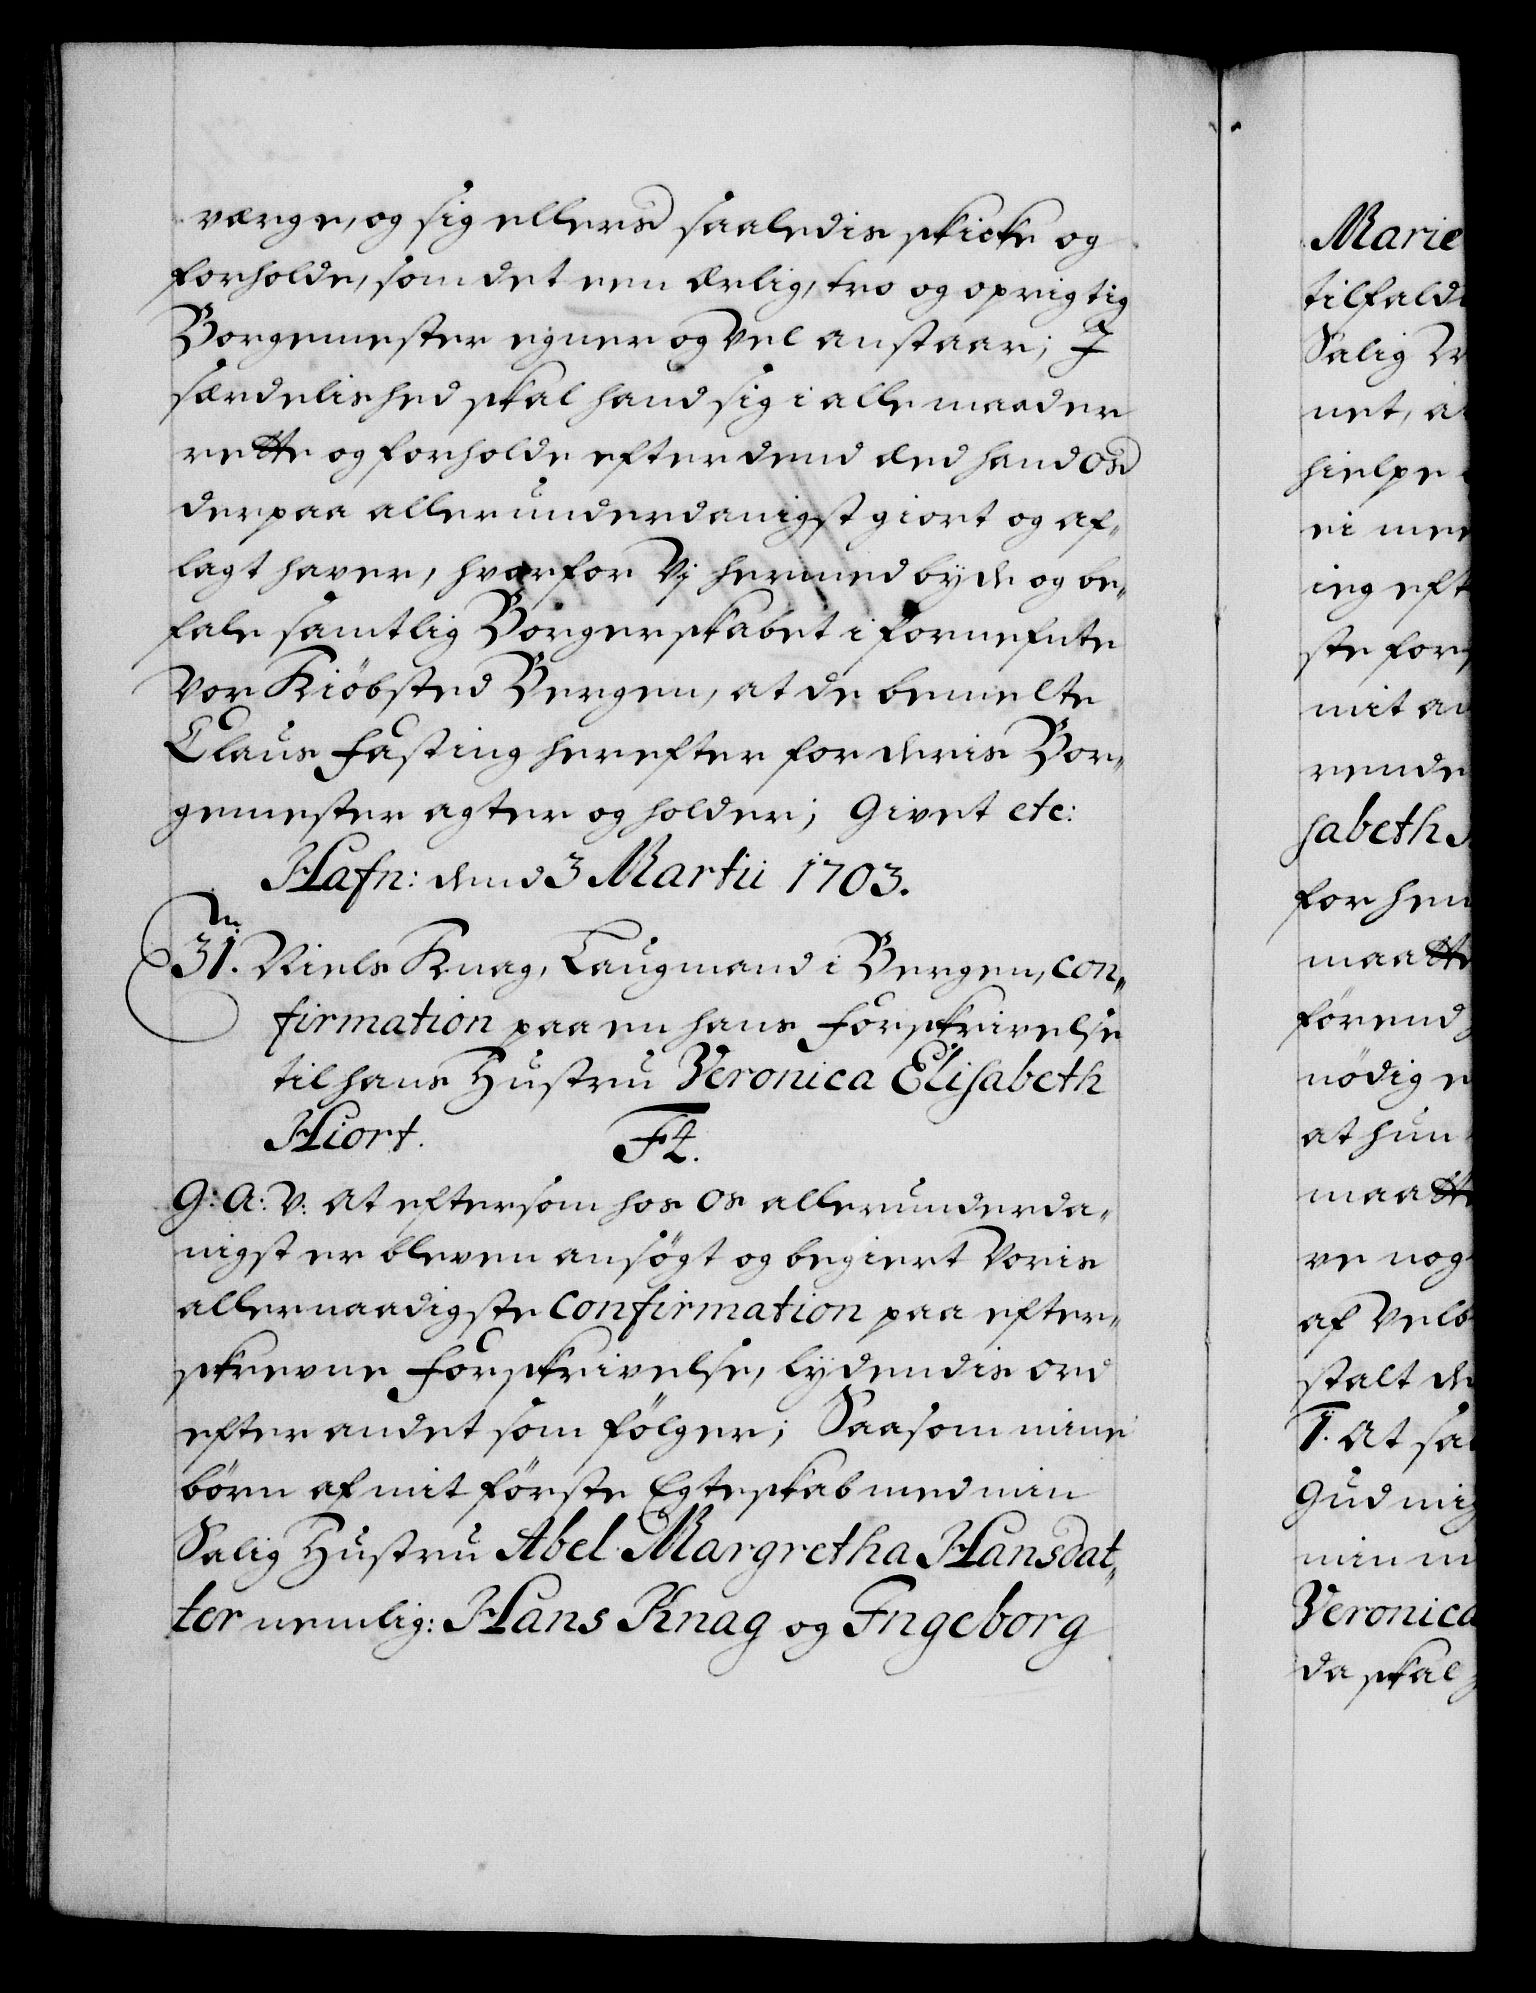 værge, og sig ellers saaledis skicke og
forholde, som det een ærlig, tro og oprigtig
Borgemester egner og vel anstaar; I
særdelished skal hand sig i alle maader
rette og forholde efter dend Eed hand Os
derpaa allerunderdanigst giort og af-
lagt haver, hvorfor Vj hermed byde og be-
fale samtlig Borgerskabet i fornefnte
Vor Kiöbsted Bergen, at de bemelte
Claus Fasting herefter for deris Bor-
gemester agter og holder; Givet etc:
Hafn: dend 3 Martii 1703.
31. Niels Knag, Laugmand i Bergen, con-
firmation paa en hans Forskrivelse
til hans Hustru Veronica Elisabeth
Hiort. Ft.
G: A: V: At eftersom hos Os allerunderda-
nigst er bleven ansögt og begiert Voris
allernaadigste Confirmation paa efter-
skrevne Forskrivelse, lydendis ord
efter andet som fölger; Saasom mine
börn af mit förste Egteskab med min
Salig Hustru Abel Margretha Hansdat-
ter nemlig: Hans Knag og Ingeborg
Marie
tilfald
Salig
net, a
hielpe
ei me
ieg eft
ste for
mit an
rende
sabeth
for hen
maatte
förend
nödig
at hun
maatte
re nog
af Velb
stalt de
1. At sa
Gud mig
min m
Veronica
da skal